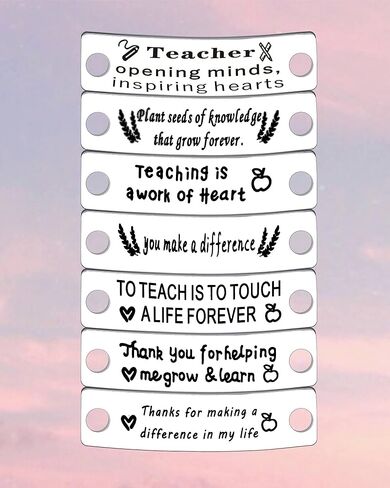 Teacher
opening minds,
inspiring hearts
Plant seeds of knowledge
that grow forever.
Teaching is
a work of Heart
you make a difference
TO TEACH IS TO TOUCH
A LIFE FOREVER
Thank you for helping
me grow & learn
Thanks for making a
difference in my life